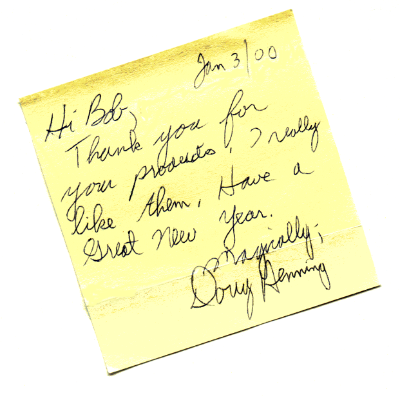 Jan 3/00
Hi Bob,
Thank you for
your products, I really
like them. Have a
Great New Year.
Magically,
Doug Henning